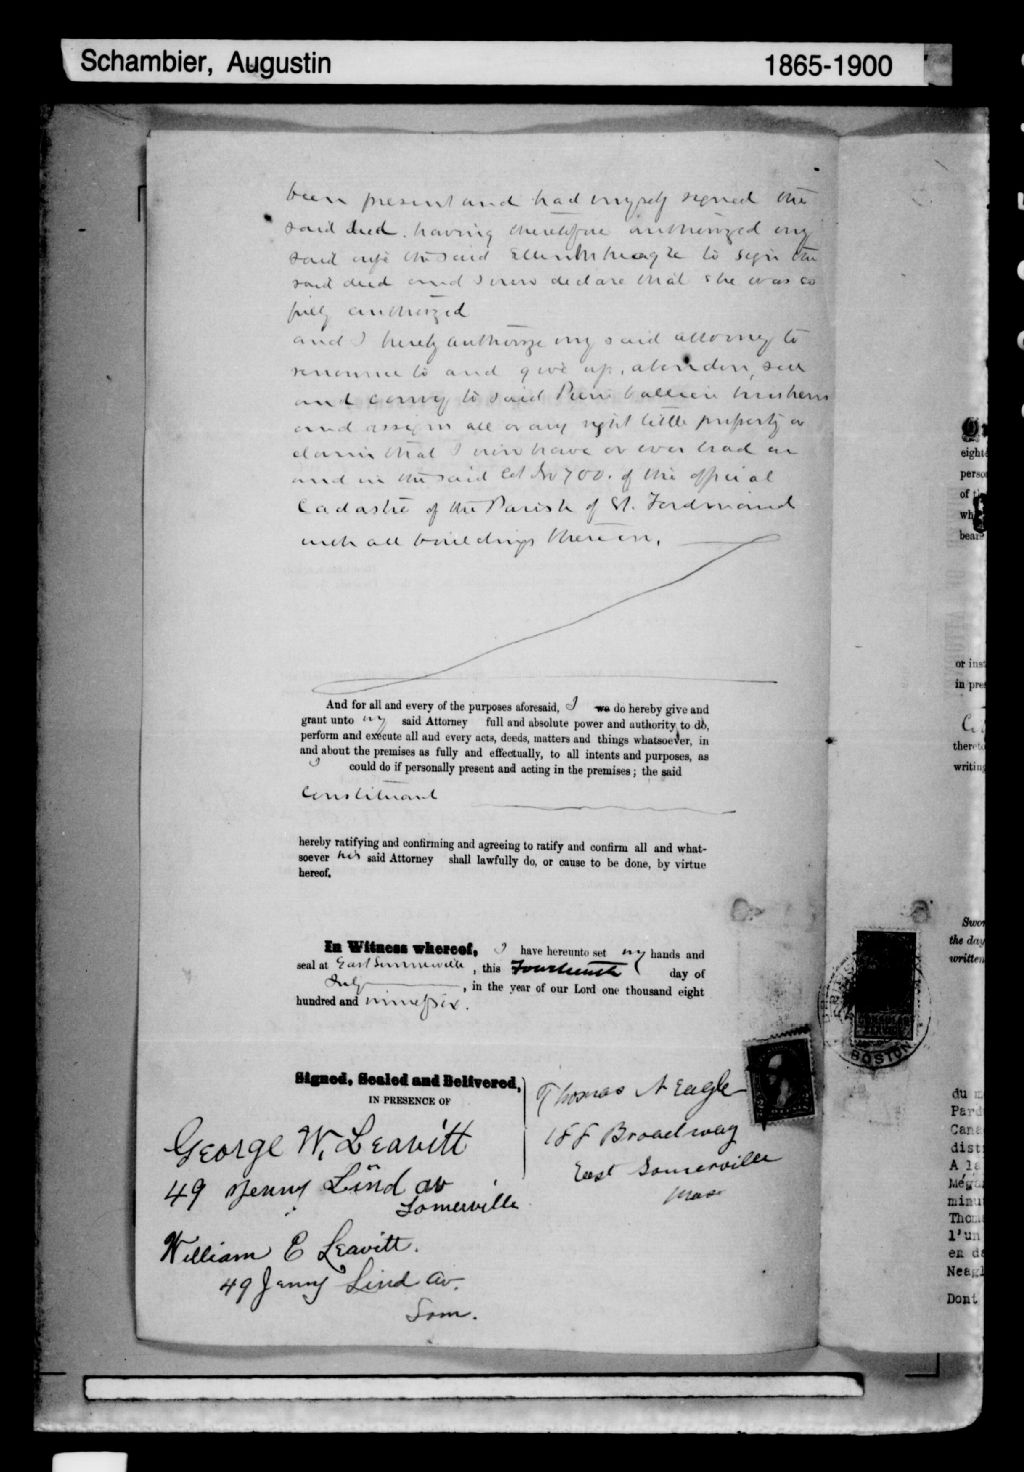 Schambier, Augustin 1865-1900
been present and had myself signed the
said deed. having therefore authorized my
said wife the said Ellen to sign the
said deed and I now declare that she was so
fully authorized
and I hereby authorize my said attorney to
renounce to and give up, abandon, sell
and convey to said
and assigns all or any right title property or
claim that I now have or ever had on
and in the said lot No 700. of the official
Cadastre of the Parish of St. Ferdinand
with all buildings thereon.
And for all and every of the purposes aforesaid, I we do hereby give and
grant unto my said Attorney full and absolute power and authority to do,
perform and execute all and every acts, deeds, matters and things whatsoever, in
and about the premises as fully and effectually, to all intents and purposes, as
I could do if personally present and acting in the premises; the said
Constituant
hereby ratifying and confirming and agreeing to ratify and confirm all and what-
soever his said Attorney shall lawfully do, or cause to be done, by virtue
hereof.
In Witness whereof, I have hereunto set my hands and
seal at East Somerville, this Fourteenth day of
July, in the year of our Lord one thousand eight
hundred and ninety six.
Signed, Sealed and Delivered,
IN PRESENCE OF
George W. Leavitt
49 Jenny Lind av
Somerville
William E Leavitt.
49 Jenny Lind av.
Som.
Thomas Neagle
188 Broadway
East Somerville
Mass
eight
perso
of t
wh
bear
or inst
in pres
thereto
writing
Swor
the day
written
BOSTON
du
Par
Cana
dist
A la
Méga
minu
Thom
l'un
en d
Neagl
Dont